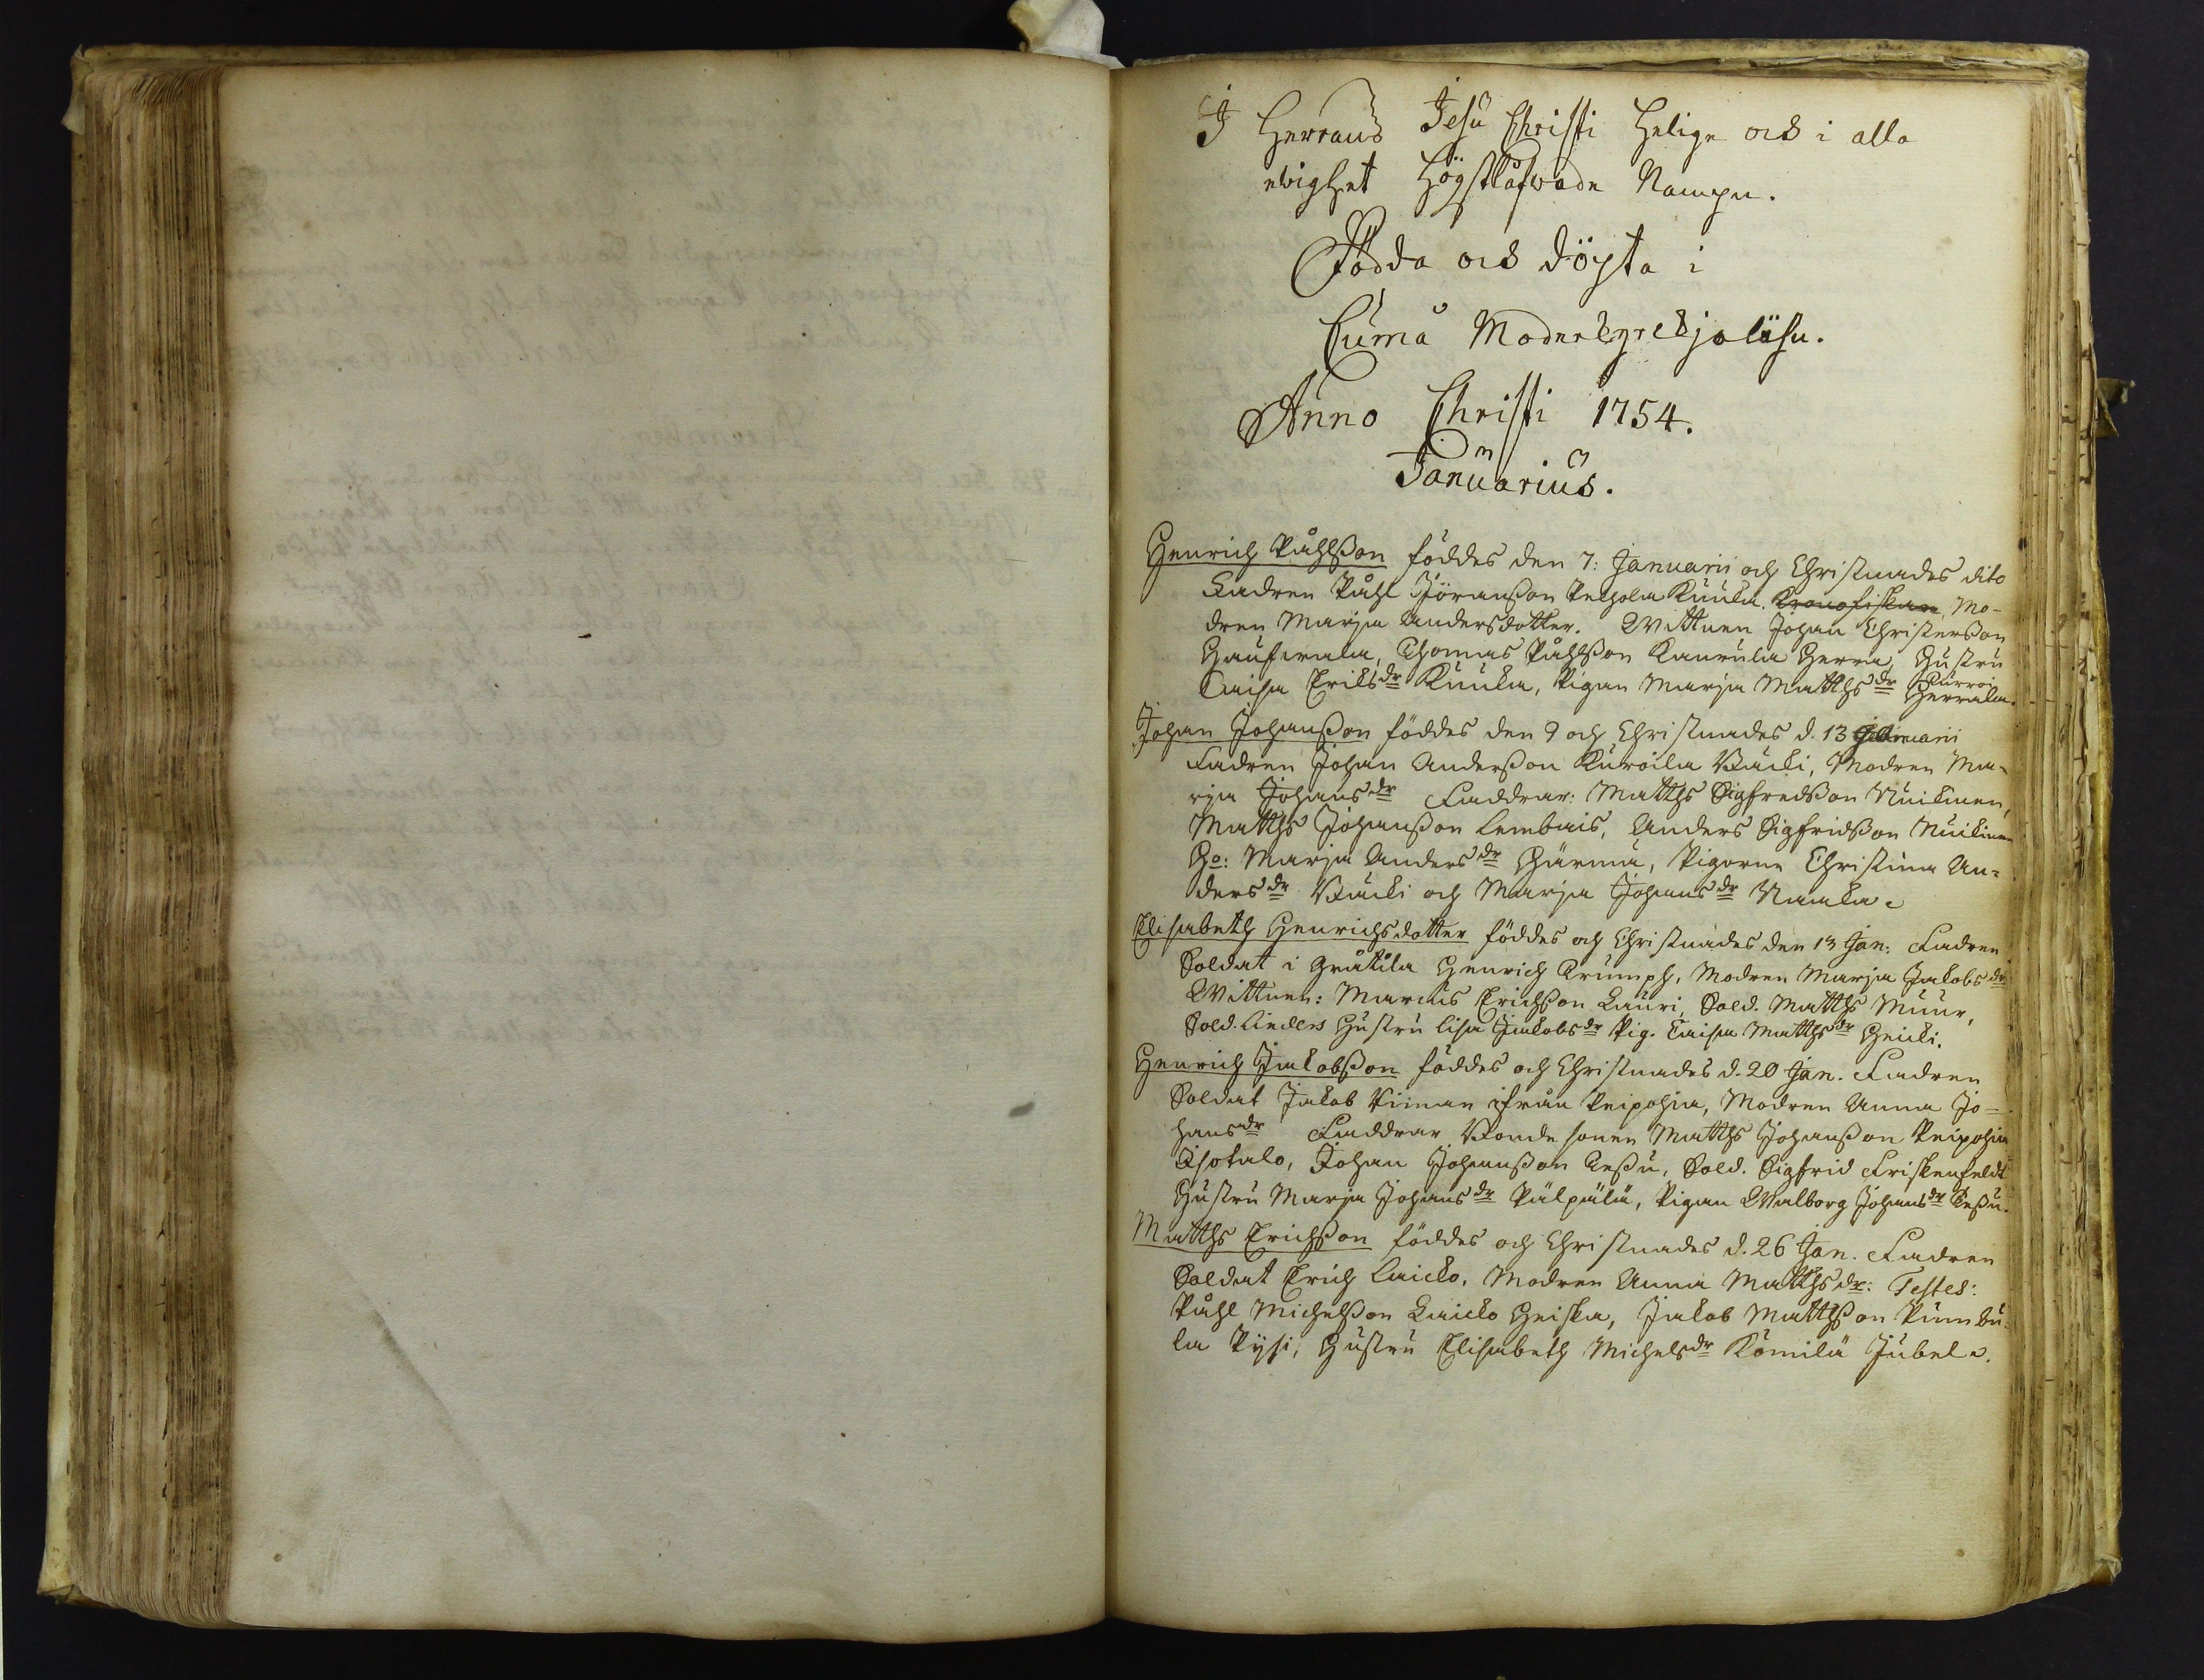 I Herrans Jesu Christi Helige och i alla
evighet Högstlåfwade Nampn.
Födda och döpta i
Cumå Moderkyrckjo läsu.
Anno Christi 1754.
Januarius.
Henrich Påhlßon föddes den 7: Januarii och Christnades dito
Fadren Påhl Jöranßon Peipola Kuula. Kronofiskare, Mo-
dren Marja Andersdotter. Wittnen Johan Christerßon
Thomas Påhlßon Kaurula Herra, Hustru
Caisa Eriksdr Kuula, Pigan Marja Matthsdr Kurroi Herrala.
Johan Johanßon föddes den 9 och Christnades d. 13 Januarii
Fadren Johan Anderßon Kuroila Wäcki, Modren Ma-
rja Johansdr Faddrar: Matths Sigfredßon Nuickinen,
Matths Johanßon Lembais, Anders Sigfridßon Nuikinen
Ho: Marja Andersdr Härmä, Pigorne Christina An-
dersdr Wäcki och Marja Johansdr
Elisabeth Henrichsdotter föddes och Christnades den 13 Jan: Fadren
Soldat i Gråtila Henrich Trumph, Modren Marja Jakobsdr
Wittnen: Marcus Erichßon Lauri, Sold. Matths Muur,
Sold. Anders Hustru Lisa Jakobsdr Pig. Caisa Matthsdr Heicki.
Henrich Jakobßon föddes och Christnades d. 20 Jan. Fadren
Soldat Jakob Viman ifrån Peipohja, Modren Anna Jo-
hansdr Faddrar Bondesonen Matths Johanßon Peipohja
Isotalo, Johan Johanßon Teßu, Sold. Sigfrid Friskenfeldt
Hustru Marja Johansdr Pälpälä, Pigan Walborg Johansdr Teßu.
Matths Erichßon föddes och Christnades d. 26 Jan. Fadren
Soldat Erich Laicko, Modren Anna Matthsdr: Testes:
Påhl Michelßon Laicko Heiska, Jakob Matthßon Punbu-
la Pysi, Hustru Elisabeth Michelsdr Kömilä Jubel.